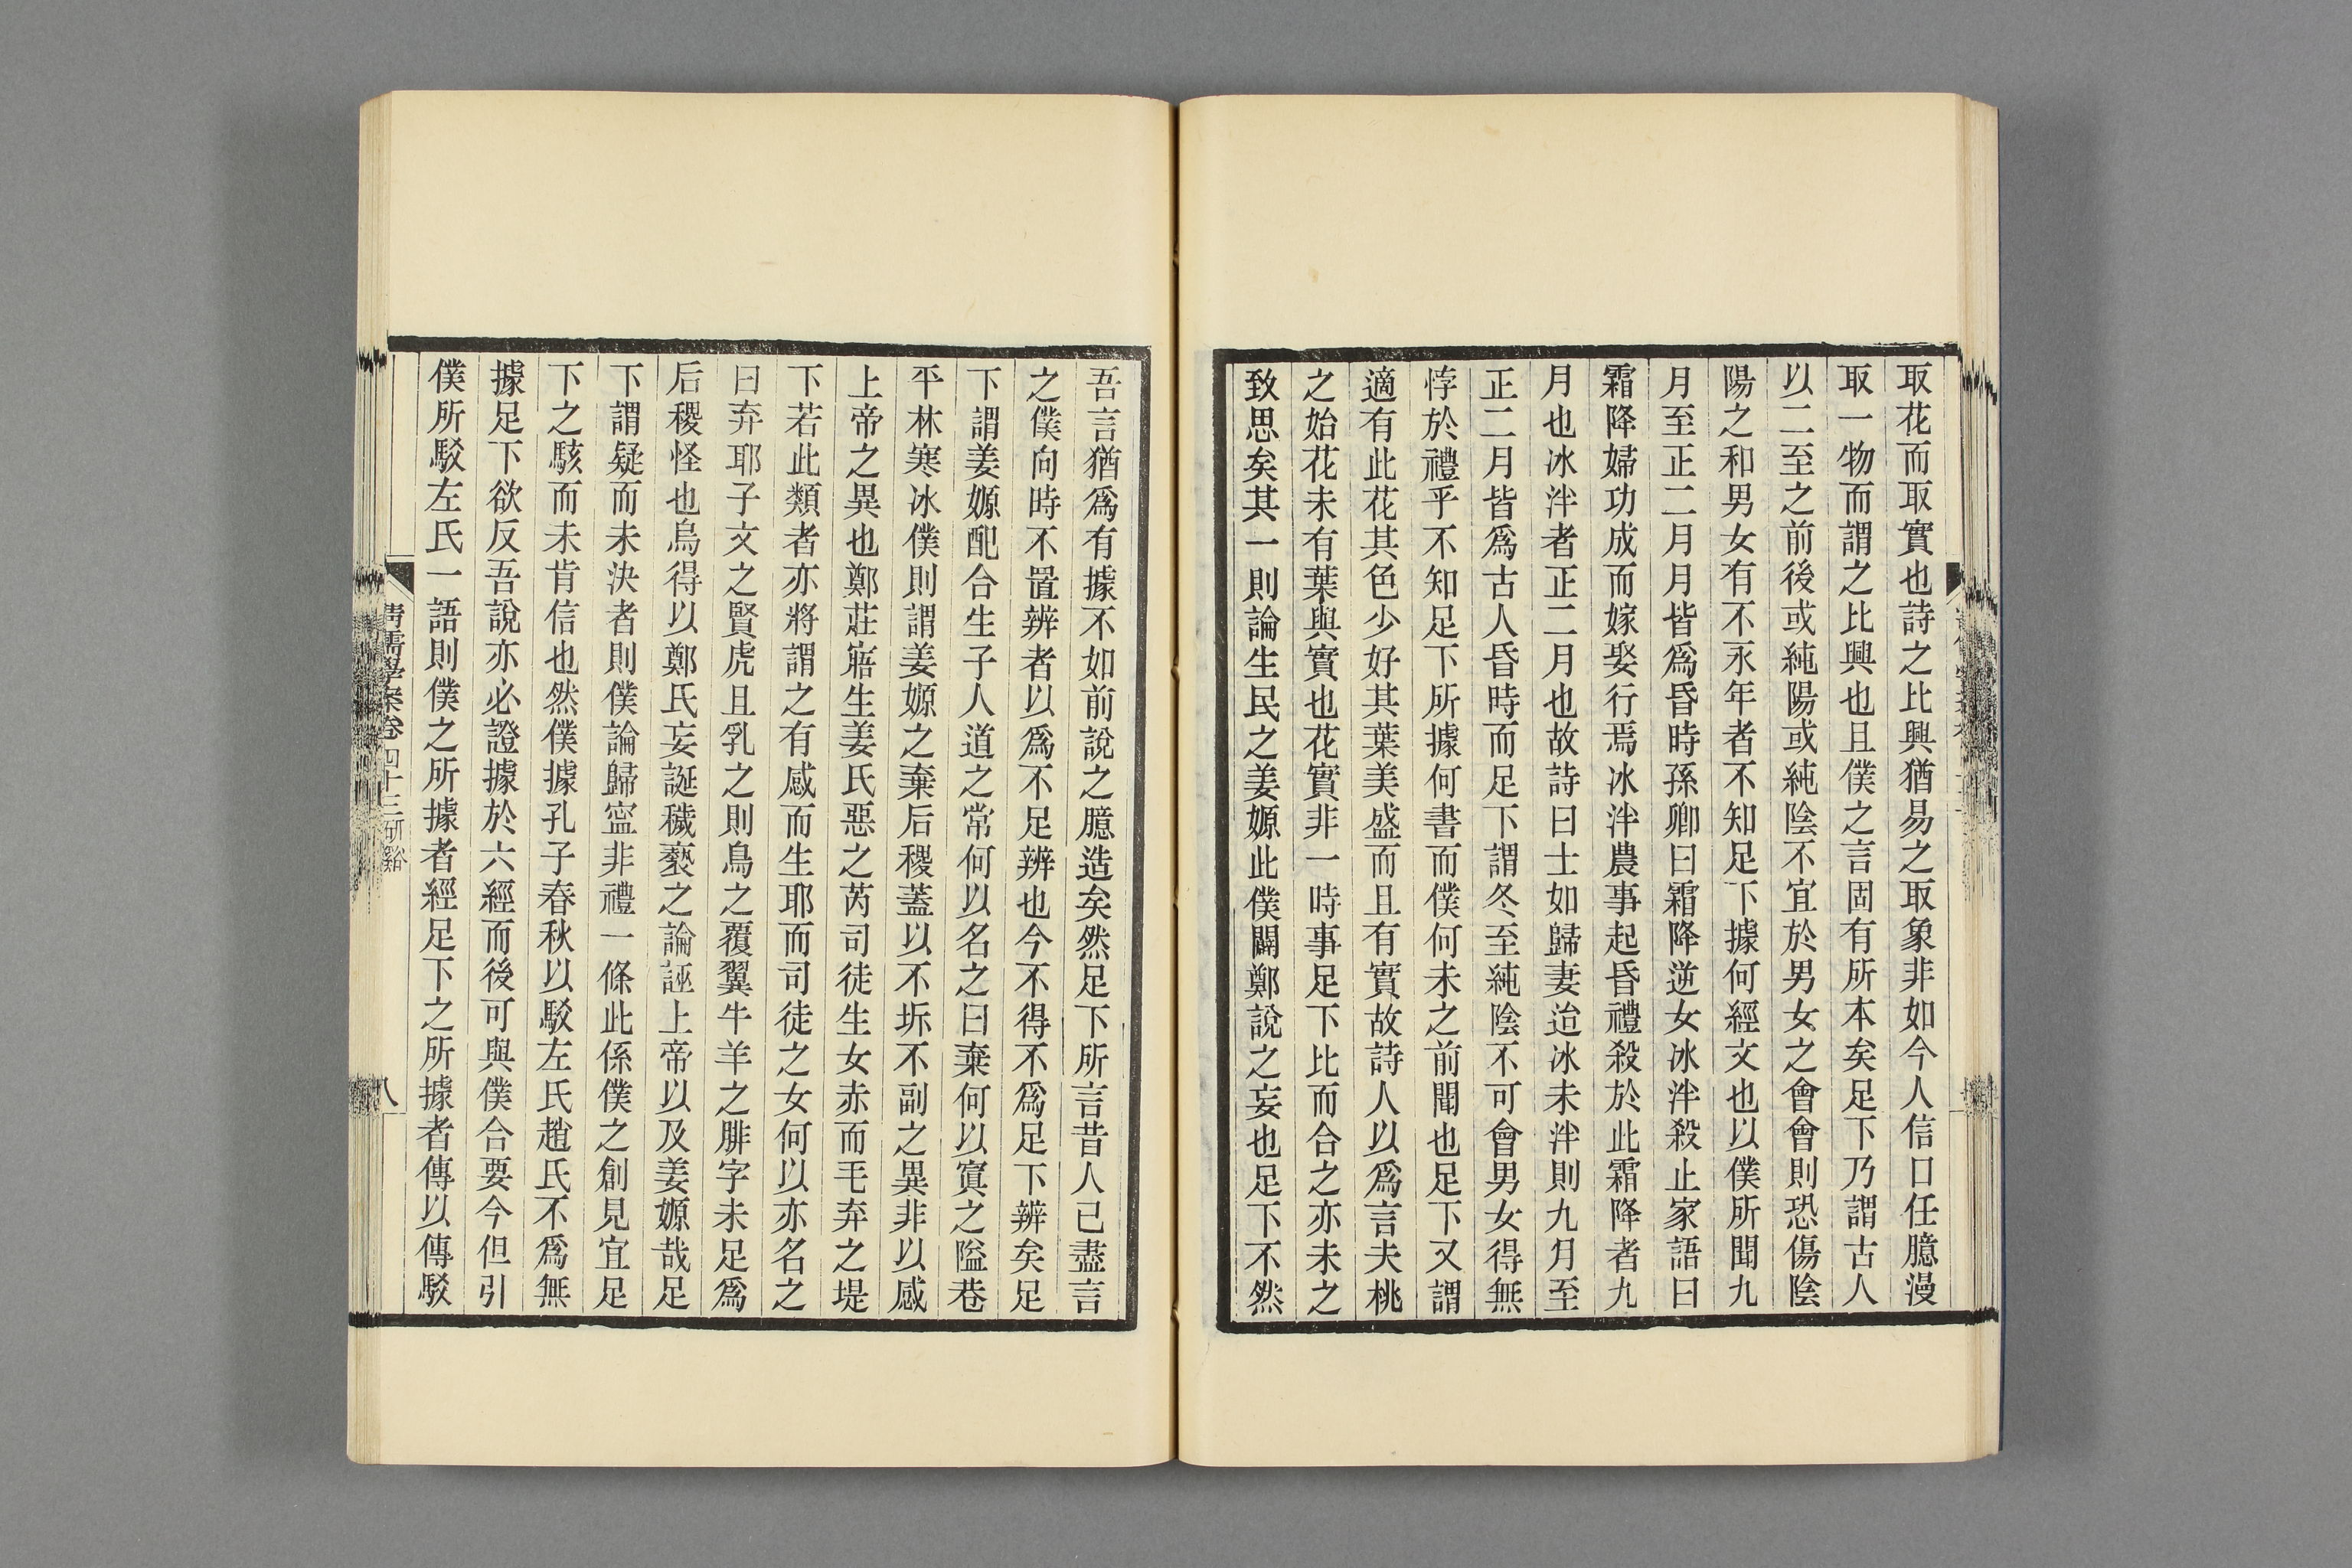 取花而取實也詩之比興猶易之取象非如今人信口任臆漫
取一物而謂之比興也且僕之言固有所本矣足下乃謂古人
以二至之前後或純陽或純陰不宜於男女之會會則恐傷陰
陽之和男女有不永年者不知足下據何經文也以僕所聞九
月至正二月月皆爲昏時孫卿曰霜降逆女冰泮殺止家語曰
霜降婦功成而嫁娶行焉冰泮農事起昏禮殺於此霜降者九
月也冰泮者正二月也故詩曰士如歸妻迨冰未泮則九月至
正二月皆爲古人昏時而足下謂冬至純陰不可會男女得無
悖於禮乎不知足下所據何書而僕何未之前聞也足下又謂
適有此花其色少好其葉美盛而且有實故詩人以爲言夫桃
之始花未有葉與實也花實非一時事足下比而合之亦未之
致思矣其一則論生民之姜嫄此僕闢鄭說之妄也足下不然
吾言猶爲有據不如前說之臆造矣然足下所言昔人已盡言
之僕向時不置辨者以爲不足辨也今不得不爲足下辨矣足
下謂姜嫄配合生子人道之常何以名之曰棄何以寘之隘巷
平林寒冰僕則謂姜嫄之棄后稷蓋以不坼不副之異非以感
上帝之異也鄭莊寤生姜氏惡之芮司徒生女赤而毛弃之堤
下若此類者亦將謂之有感而生耶而司徒之女何以亦名之
曰弃耶子文之賢虎且乳之則鳥之覆翼牛羊之腓字未足爲
后稷怪也烏得以鄭氏妄誕穢褻之論誣上帝以及姜嫄哉足
下謂疑而未決者則僕論歸寍非禮一條此係僕之創見宜足
下之駭而未肯信也然僕據孔子春秋以駁左氏趙氏不爲無
據足下欲反吾說亦必證據於六經而後可與僕合要今但引
僕所駁左氏一語則僕之所據者經足下之所據者傳以傳駁
清儒學案卷四十三研谿
八